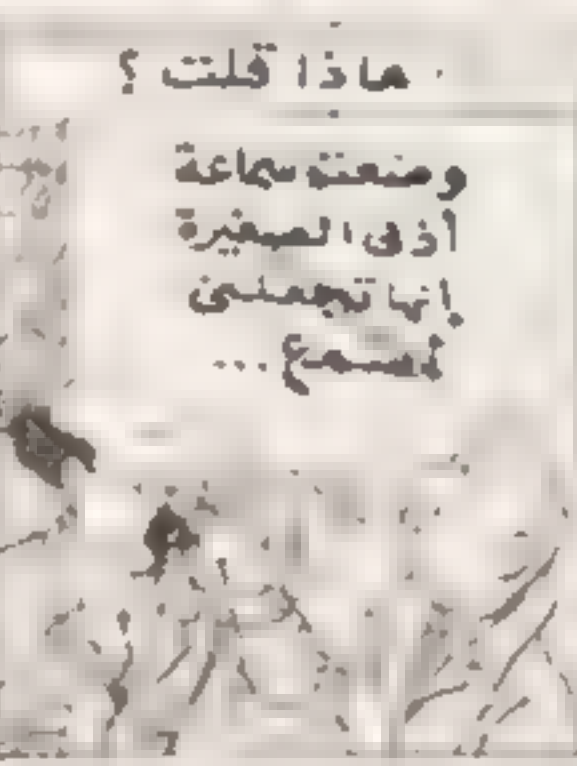 ماذا قلت ؟
وضعت سماعة
أذني الصغيرة
إنها تجعلني
أسمع ...